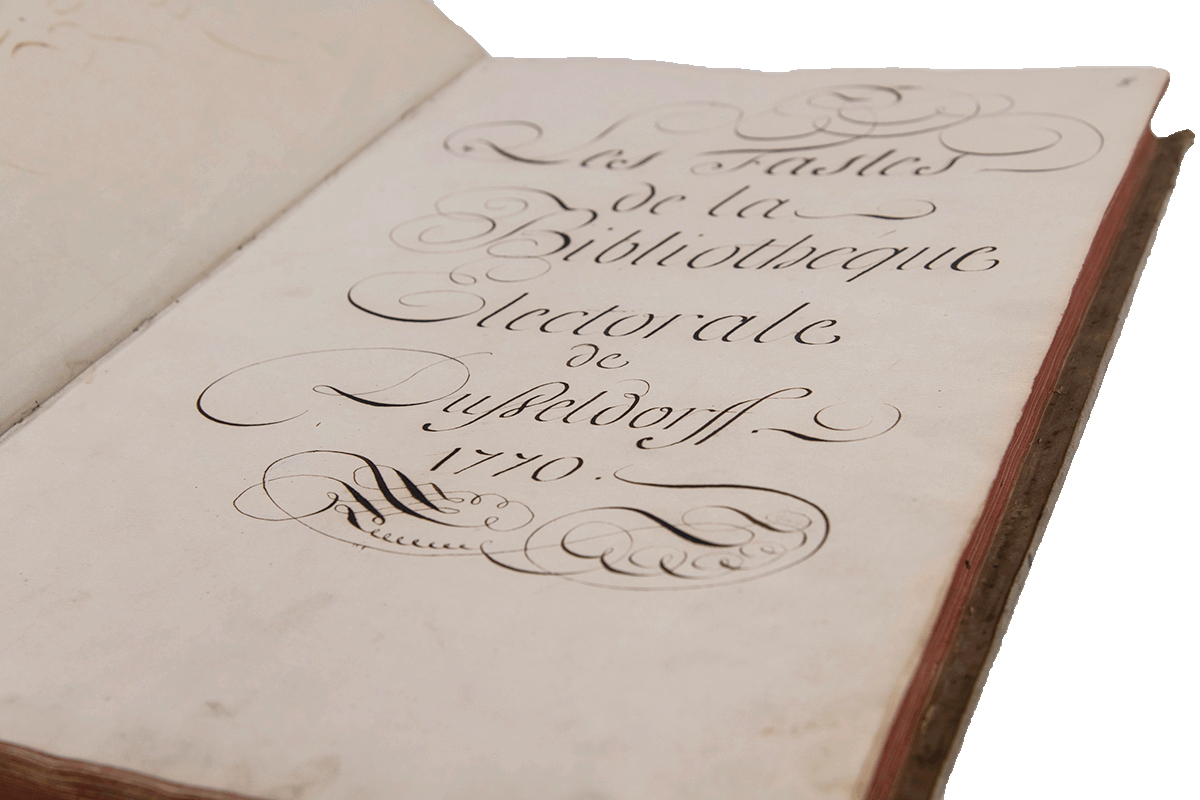 Les Fastes
de la
Bibliothéque
Electorale
de
Dusseldorff.
1770.